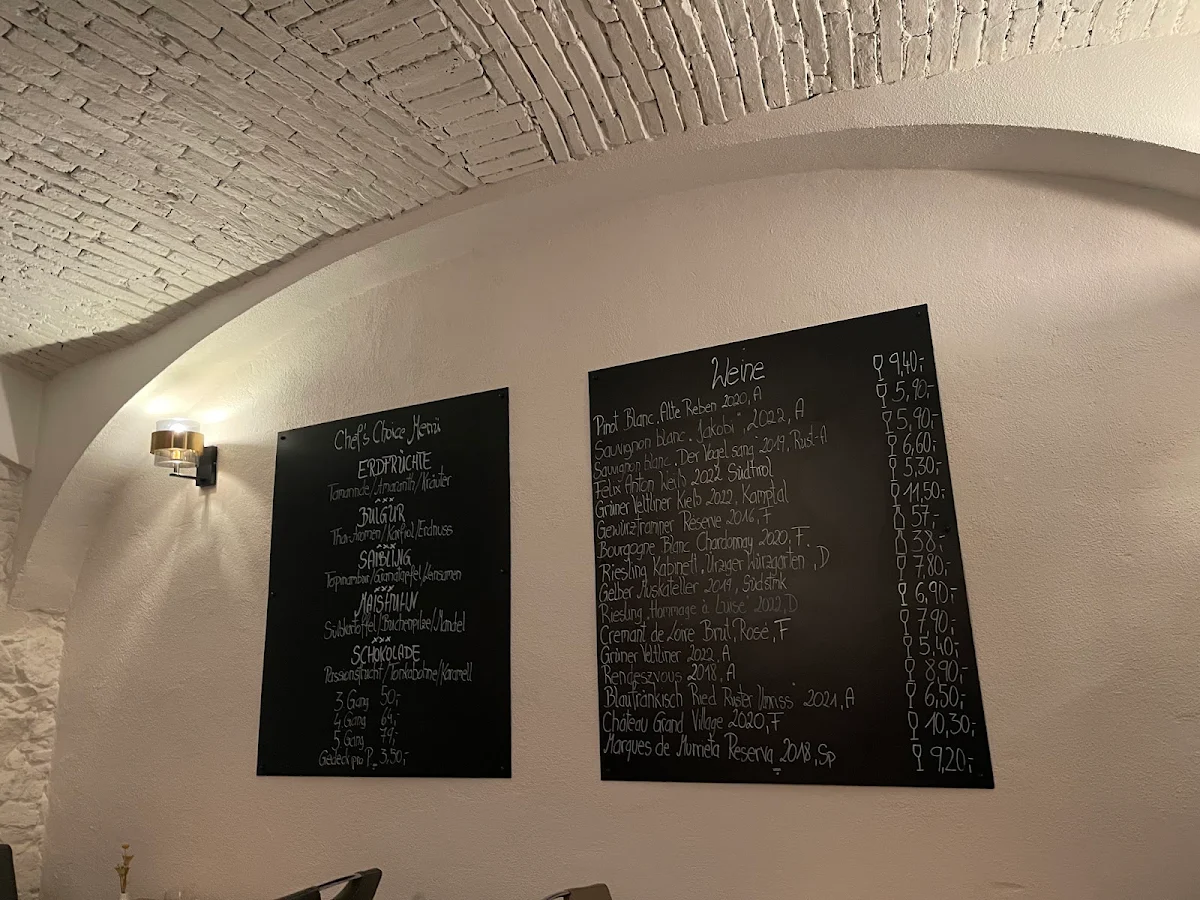 Chef's Choice Menü
ERDFRÜCHTE
Tamarinde/Amaranth/Kräuter
xxx
BULGUR
Thai-Aromen/Karfiol/Erdnuss
xxx
SAIBLING
Topinambur/Granatapfel/Leinsamen
xxx
MAISHUHN
Süßkartoffel/Buchenpilze/Mandel
xxx
SCHOKOLADE
Passionsfrucht/Tonkabohne/Karamell
3 Gang 50,-
4 Gang 64,-
5 Gang 79,-
Gedeck pro P. 3,50,-
Weine
Pinot Blanc, Alte Reben 2020, A 9,40,-
Sauvignon blanc "Jakobi" 2022, A 5,90,-
Sauvignon blanc "Der Vogelsang" 2019, Rust-A 5,90,-
Felix Anton Weiß 2022 Südtirol 6,60,-
Grüner Veltliner Kieß 2022, Kamptal 5,30,-
Gewürztraminer Reserve 2016, F 11,50,-
Bourgogne Blanc Chardonnay 2020, F. 57,-
Riesling Kabinett, Ürziger Würzgarten, D 38,-
Gelber Muskateller 2019, Südstmk 7,80,-
Riesling "Hommage à Luise" 2022, D 6,90,-
Cremant de Loire Brut, Rosé, F 7,90,-
Grüner Veltliner 2022, A 5,40,-
Rendeszvous 2018, A 8,90,-
Blaufränkisch Ried Ruster Umriss 2021, A 6,50,-
Château Grand Village 2020, F 10,30,-
Marques de Murrieta Reserva 2018, Sp 9,20,-